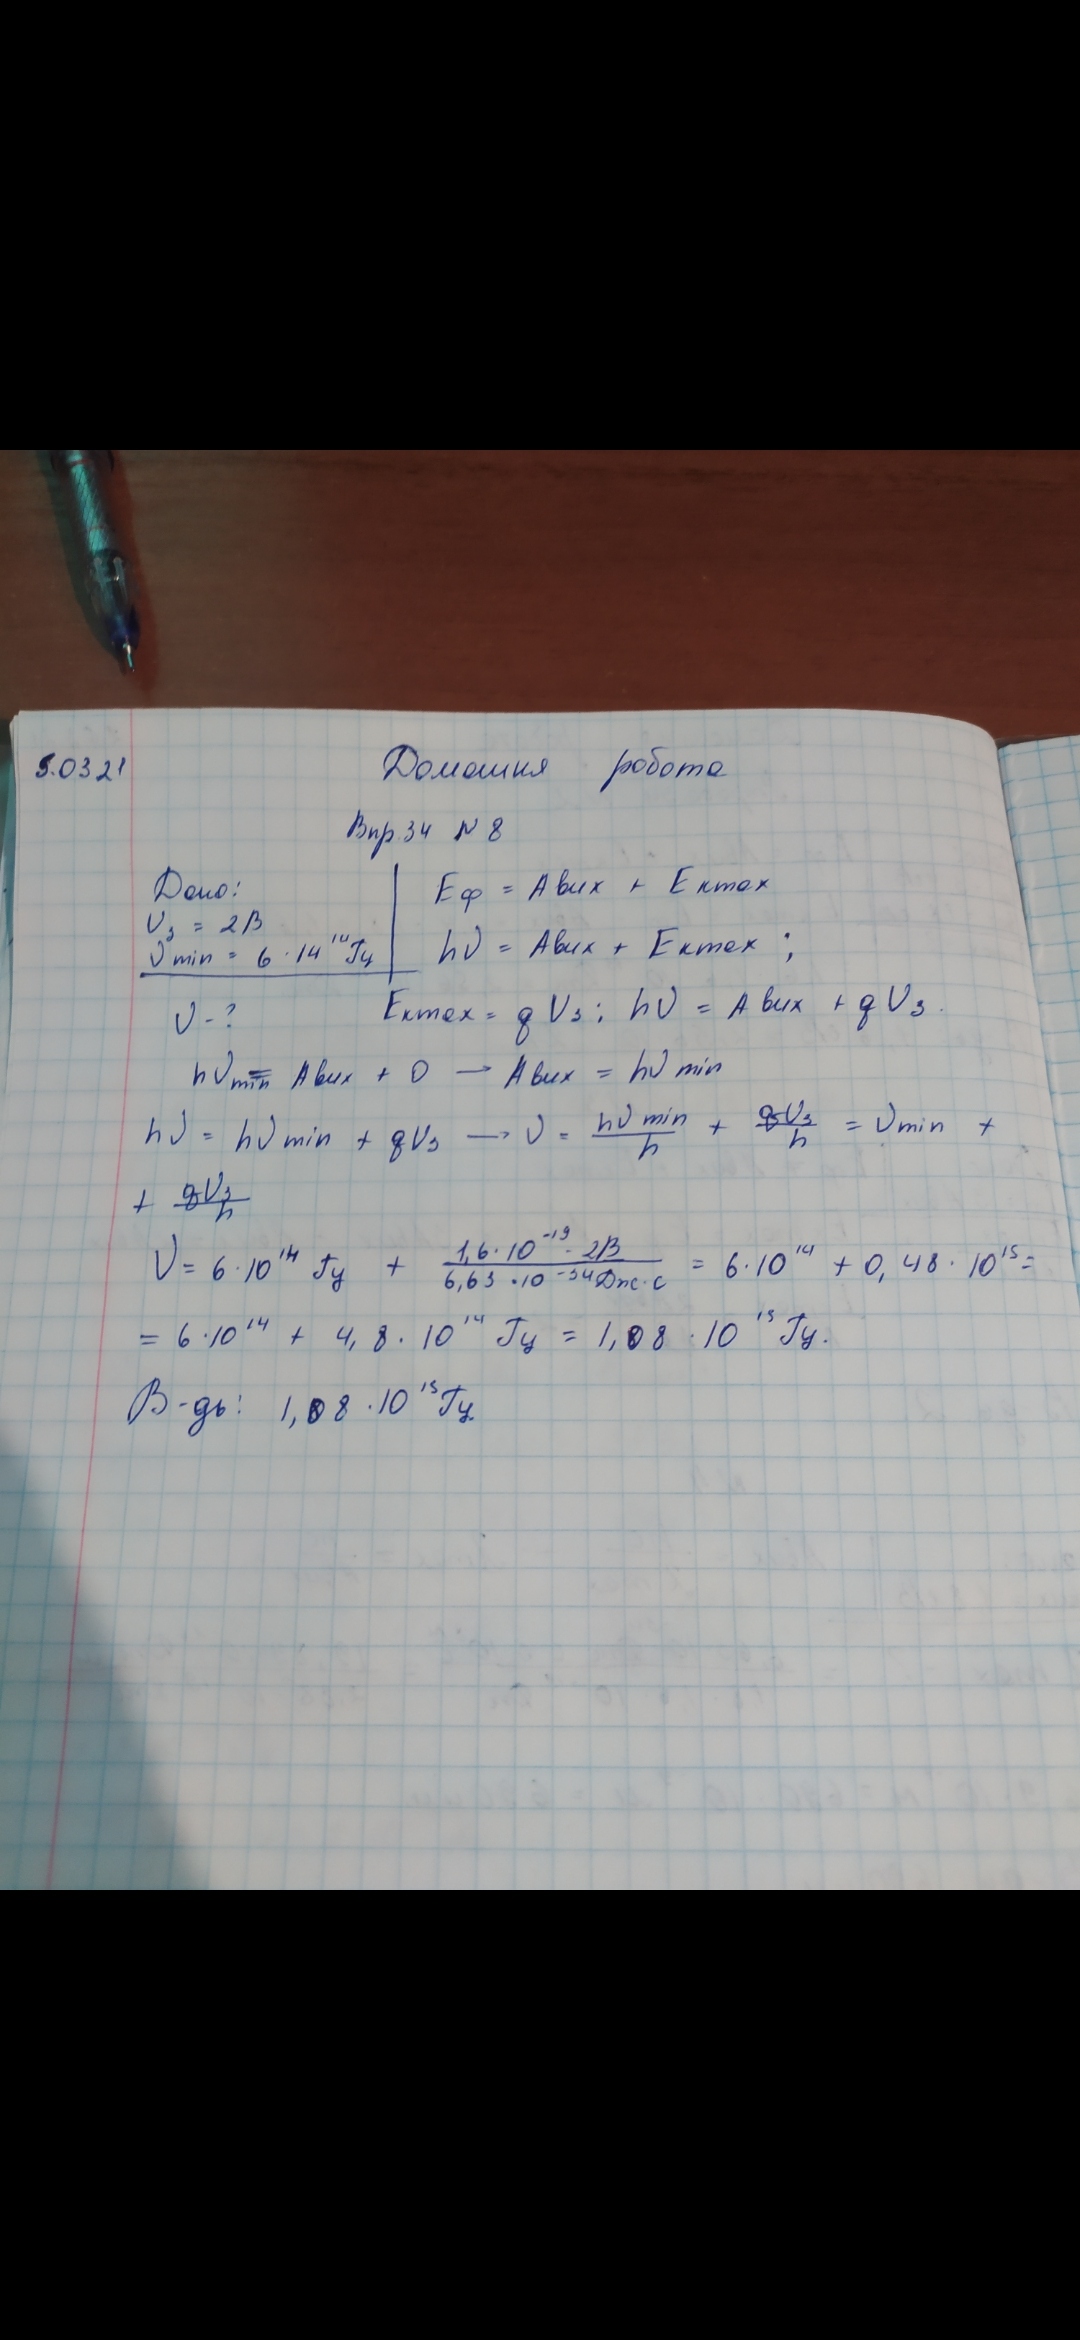 5.03.21 Домашня робота
Впр.34 №8
Дано:
U₃ = 2В
νmin = 6 · 14¹⁴ Гц
ν - ?
Eф = Aвих + Eкmax
hν = Aвих + Eкmax ;
Eкmax = qU₃ ; hν = Aвих + qU₃ .
hνmin = Aвих + 0 → Aвих = hνmin
hν = hνmin + qU₃ → ν = hνmin/h + qU₃/h = νmin +
+ qU₃/h
ν = 6·10¹⁴ Гц + 1,6·10⁻¹⁹ · 2В / 6,63 · 10⁻³⁴ Дж·с = 6·10¹⁴ + 0,48 · 10¹⁵ =
= 6·10¹⁴ + 4,8 · 10¹⁴ Гц = 1,08 · 10¹⁵ Гц.
В-дь: 1,08 · 10¹⁵ Гц.